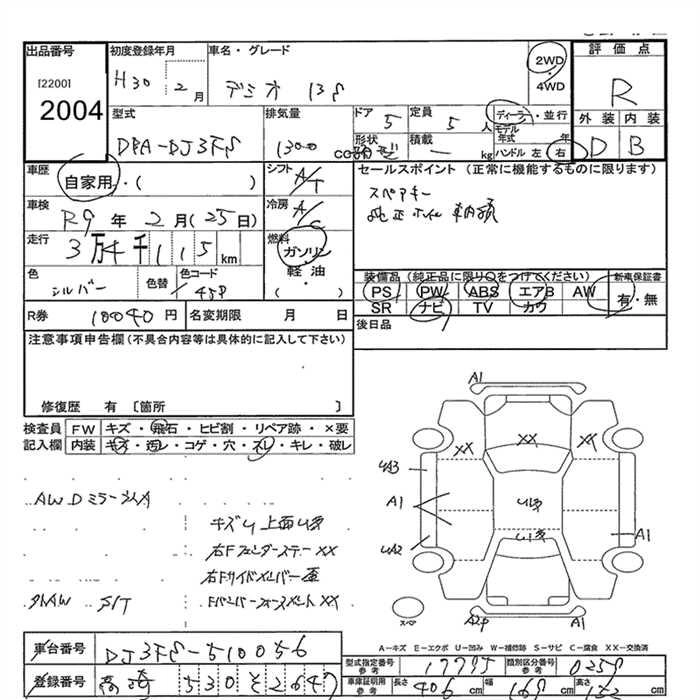 出品番号 初度登録年月 車名・グレード 評価点
[2200] H30 2月 デミオ 13S 2WD・4WD R
2004
型式 排気量 ドア 定員 ディーラー・並行 外装 内装
DBA-DJ3FS 1300 cc 5 5人 モデル年式 年 D B
形状 積載 kg ハンドル 左 右
車歴 自家用・( ) シフト A/T セールスポイント (正常に機能するものに限ります)
スペアキー
車検 R9年2月(25日) 冷房 A/C
走行 3万4千115km 燃料 ガソリン・軽油・( )
色 シルバー 色替 色コード 45P
装備品(純正品に限り○をつけてください) 新車保証書
PS PW ABS エアB AW 有・無
SR ナビ TV カワ
R券 10040円 名変期限 月 日 後日品
注意事項申告欄(不具合内容等は具体的に記入して下さい)
修復歴 有 [箇所 ]
検査員記入欄 FW キズ・飛石・ヒビ割・リペア跡・×要
内装 キズ・汚レ・コゲ・穴・スレ・キレ・破レ
A1
XX XX XX
UA3
A1
UA2
A1
A1
キズU 上面U
右Fフェンダーステー XX
右Fサイドメンバー
Fバンパーフォースメント XX
S/T
スペア
A-キズ E-エクボ U-凹み W-補修跡 S-サビ C-腐食 XX-交換済
車台番号 DJ3FS-510056
登録番号 530 そ 2647
型式指定番号参考 17795 類別区分番号参考 0258
車庫証明用参考 長さ 406cm 幅 169cm 高さ 152cm